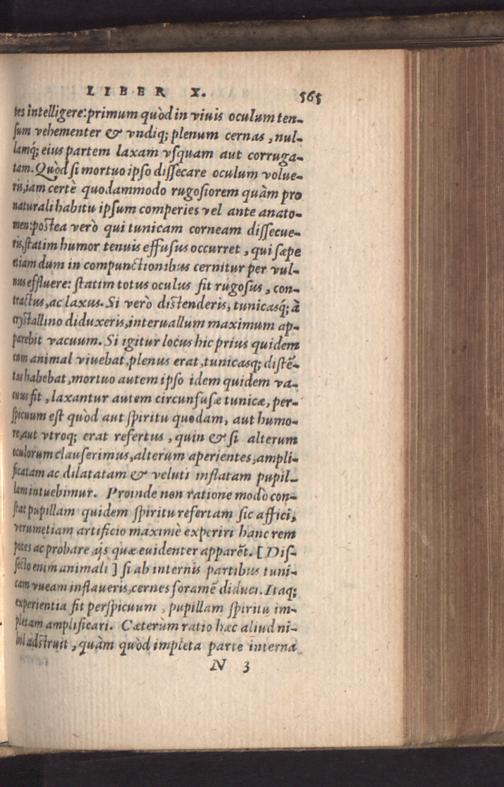 LIBER X. 565
tes intelligere: primum quòd in viuis oculum ten-
sum vehementer & vndiq; plenum cernas, nul-
lamq; eius partem laxam vsquam aut corruga-
tam. Quòd si mortuo ipso dissecare oculum volue-
ris, iam certè quodammodo rugosiorem quàm pro
naturali habitu ipsum comperies vel ante anato-
men: postea verò qui tunicam corneam dissecue-
ris, statim humor tenuis effusus occurret, qui sæpe
etiam dum in compunctionibus cernitur per vul-
nus effluere: statim totus oculus fit rugosus, con-
tractus, ac laxus. Si verò distenderis, tunicasq; à
crystallino diduxeris, interuallum maximum ap-
parebit vacuum. Si igitur locus hic prius quidem
cum animal viuebat, plenus erat, tunicasq; distẽ-
tas habebat, mortuo autem ipso idem quidem va-
cuus fit, laxantur autem circunfusæ tunicæ, per-
spicuum est quòd aut spiritu quodam, aut humo-
re, aut vtroq; erat refertus, quin & si alterum
oculorum clauserimus, alterum aperientes, ampli-
ficatam ac dilatatam & veluti inflatam pupil-
lam intuebimur. Proinde non ratione modò con-
stat pupillam quidem spiritu refertam sic affici,
verumetiam artificio maximè experiri hanc rem
potes ac probare ijs quæ euidenter apparẽt. [Dis-
secto enim animali] si ab internis partibus tuni-
cam vueam inflaueris, cernes foramẽ diduci. Itaq;
experientia fit perspicuum, pupillam spiritu im-
pletam amplificari. Cæterùm ratio hæc aliud ni-
hil adstruit, quàm quòd impleta parte interna
N 3